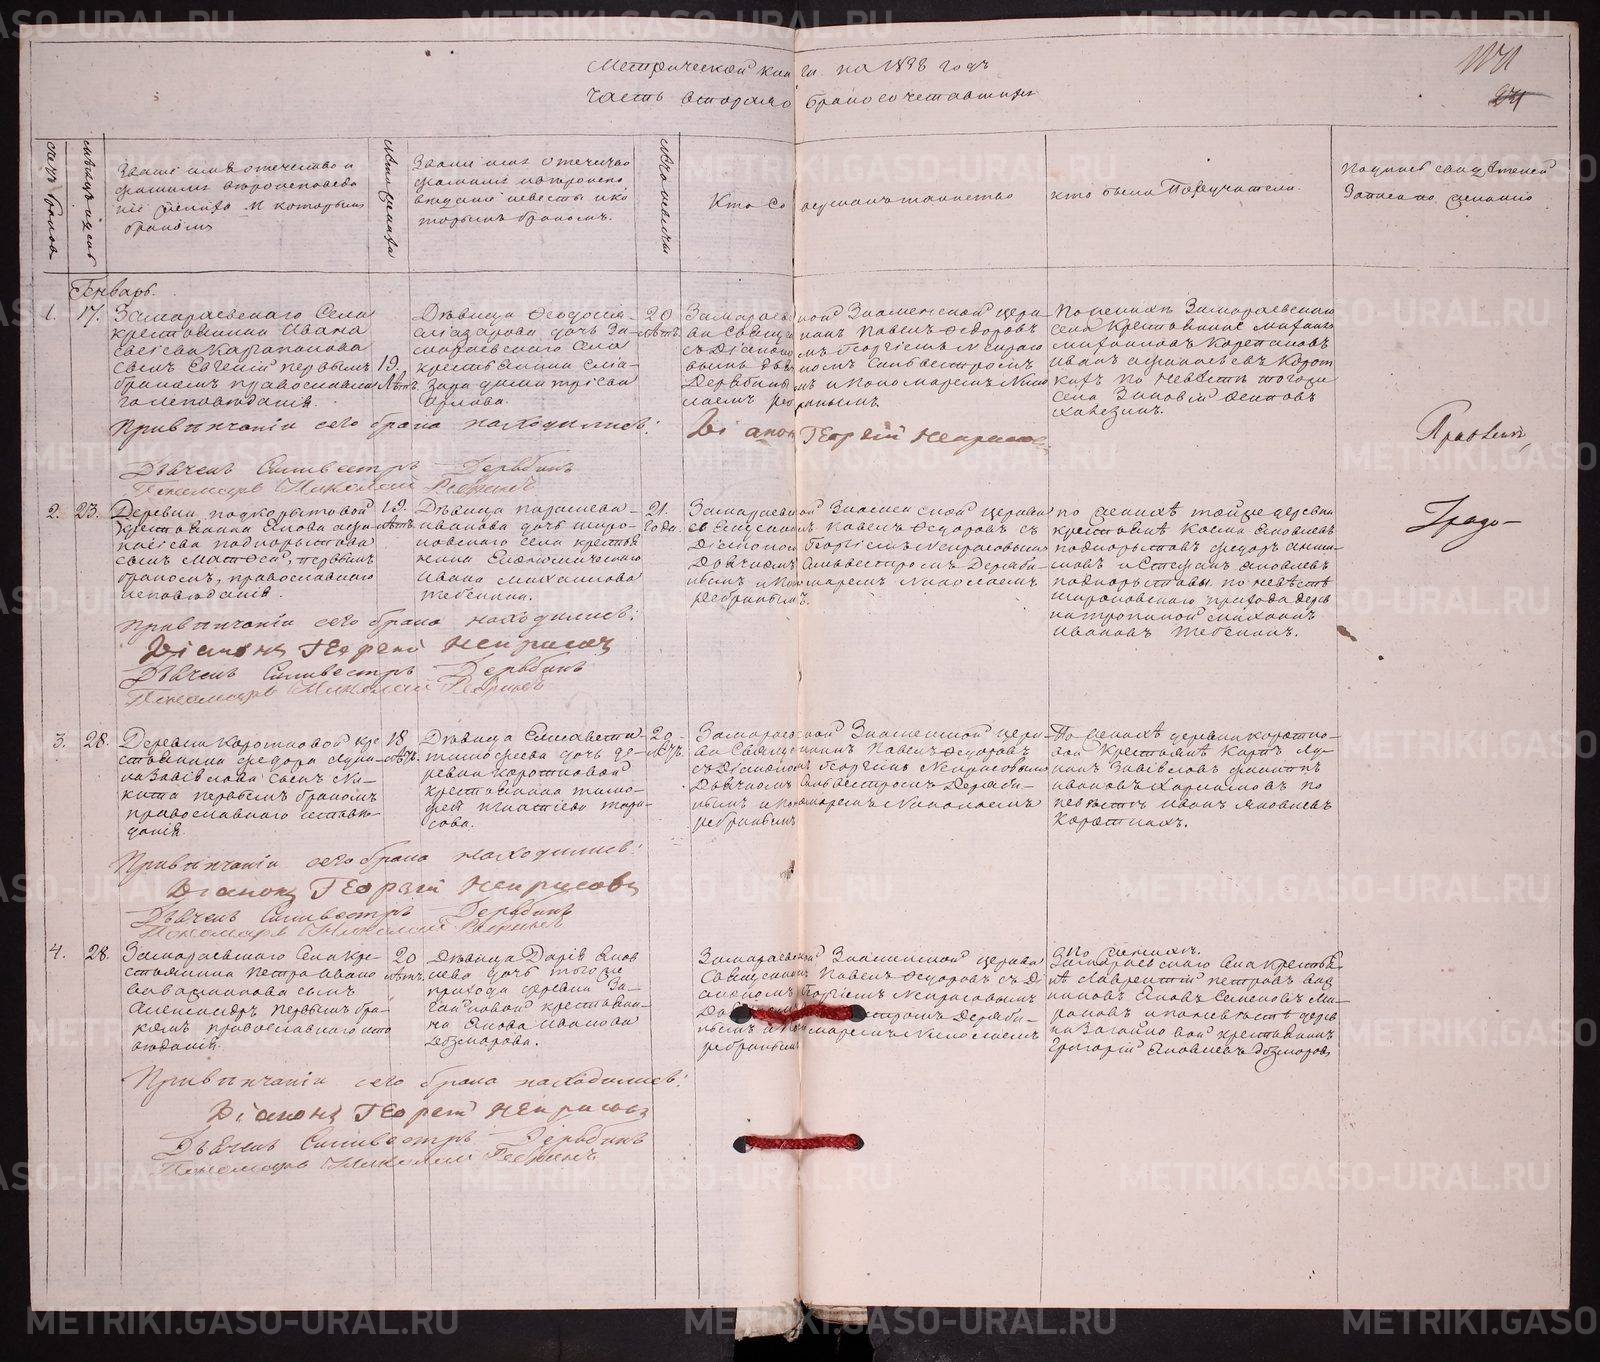 Метрической книги на 1838 годъ
часть вторая о бракосочетавшихся
1141
счетъ браковъ
мѣсяцъ и день
Званіе имя отечество и
фамилія вѣроисповѣда
ніе жениха и которымъ
бракомъ
лѣта жениха
Званіе имя отечество
фамилія
невесты и ко
торымъ бракомъ.
лѣта невѣсты
Кто со
вершалъ таинство
кто были Поручители
Подпись свидѣтелей
Записано желанію
Генварь.
1.
17.
Замараевскаго Села
крестьянина Ивана
сынъ Евгеній первымъ
бракомъ православна
го исповѣданія.
19.
лѣтъ.
Дѣвица Феодосія
дочь За
мараевскаго Села
крестьянина Ела-
зара Димитріева
Орлова.
20
лѣтъ.
Замараев
ской Знаменской церк-
ви Священ
никъ Павелъ Федоровъ
съ Діакономъ Георгіемъ Некрасо
вымъ Дьячкомъ Сильвестромъ
Дерябинымъ и Пономаремъ Нико
лаемъ Ребринымъ
По женихѣ Замараевскаго
села крестьяне Михаилъ
по невѣстѣ тогоже
села Зиновій
При вѣнчаніи сего брака находились:
Діаконъ Георгій Некрасовъ
Дьячекъ Силивестръ Дерябинъ
Пономарь Николай Ребринъ
Правынъ
2.
23.
Деревни Подкорытовой
крестьянина Якова
Подкорытова
сынъ Матѳей, первымъ
бракомъ, православнаго
исповѣданія.
19.
лѣтъ.
Дѣвица Параскева
Иванова дочь Широ-
ковскаго села крестья
нина Економическаго
Ивана Михайлова
Тебенина.
21.
года.
Замараевской Знаменской церкви
Священникъ Павелъ Федоровъ съ
Діакономъ Георгіемъ Некрасовымъ
Дьячкомъ Сильвестромъ Деряби-
нымъ и Пономаремъ Николаемъ
Ребринымъ.
По женихѣ тойже деревни
крестьяне Козма Яковлевъ
Подкорытовъ Федоръ
и Степанъ Яковлевъ
Подкорытовы. по невѣстѣ
Широковскаго прихода дерев
Михаилъ
Ивановъ Тебенинъ.
Градо-
При вѣнчаніи сего брака находились:
Діаконъ Георгій Некрасовъ
Дьячекъ Силивестръ Дерябинъ
Пономарь Николай Ребринъ
3.
28.
Деревни Коротковой кре
стьянина Федора Луки-
на Завьялова сынъ Ни-
кита первымъ бракомъ
православнаго исповѣ-
данія.
18
лѣтъ.
Дѣвица Елисавета
Тимофеева дочь де-
ревни Коротковой
крестьянина Тимо-
фея Игнатіева Тара-
сова.
20-
лѣтъ.
Замараевской Знаменской церк-
ви Священникъ Павелъ Федоровъ
съ Діакономъ Георгіемъ Некрасовымъ
Дьячкомъ Сильвестромъ Деряби-
нымъ и Пономаремъ Николаемъ
Ребринымъ
По женихѣ деревни Коротко-
вой крестьяне Карпъ Лу-
кинъ Завьяловъ
Ивановъ по
невѣстѣ Иванъ Яковлевъ
При вѣнчаніи сего брака находились:
Діаконъ Георгій Некрасовъ
Дьячекъ Силивестръ Дерябинъ
Пономарь Николай Ребринъ
4.
28.
Замараевскаго Села кре-
стьянина Петра Ивано
ва сынъ
Александръ первымъ бра-
комъ православнаго испо
вѣданія.
20
лѣтъ.
Дѣвица Дарія Яков
лева дочь тогоже
прихода деревни За-
гайновой крестьяни-
на Якова Иванова
Обжорова.
Замараевской Знаменской церкви
Священникъ Павелъ Федоровъ съ Ді
акономъ Георгіемъ Некрасовымъ
Деряби-
нымъ и Пономаремъ Николаемъ
Ребринымъ
По женихѣ.
Замараевскаго Села крестья
не Лаврентій Петровъ
Яковъ Семеновъ Ми-
роновъ и по невѣстѣ дерев
ни Загайновой крестьянинъ
Григорій Яковлевъ Обжоровъ
При вѣнчаніи сего брака находились:
Діаконъ Георгій Некрасовъ
Дьячекъ Силивестръ Дерябинъ
Пономарь Николай Ребринъ
METRIKI.GASO-URAL.RU